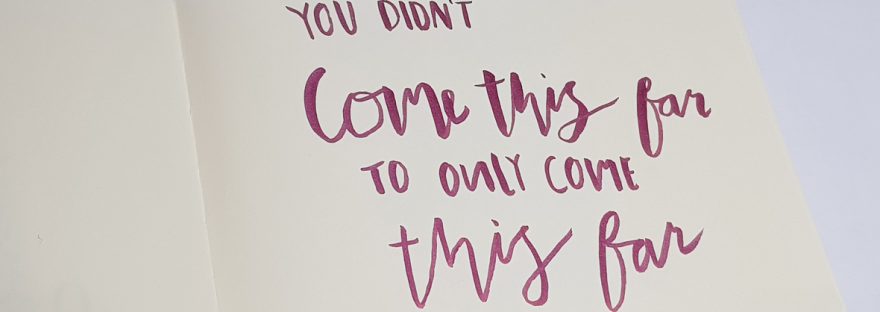 YOU DIDN'T
Come this far
TO ONLY COME
this far